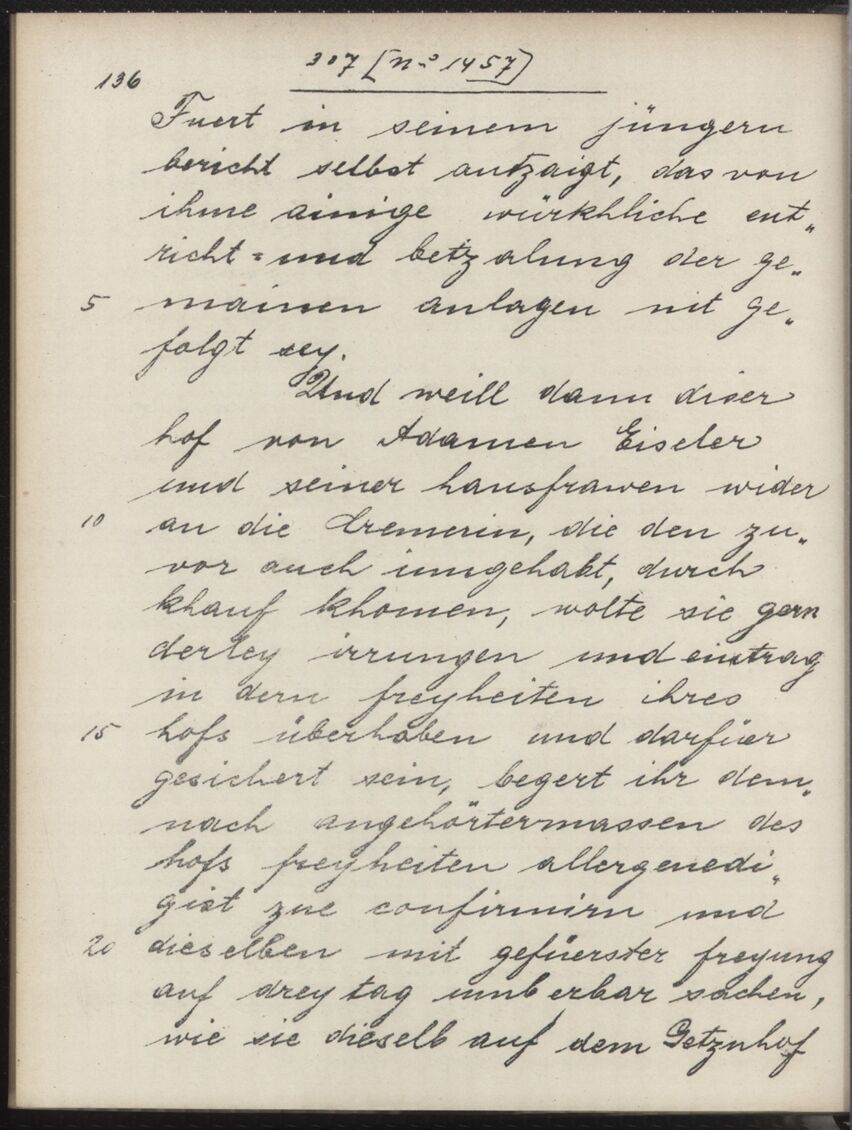 307 [nº 1457]
136
Fuert in seinem jüngern
bericht selbst antzaigt, das von
ihme ainige würkhliche ent„
richt= und betzalung der ge„
5 mainen anlagen nit ge„
folgt sey.
Und weill dann diser
hof von Adamen Eiseler
und seiner hausfrawen wider
10 an die Cremerin, die den zu„
vor auch inngehabt, durch
khauf khomen, wolte sie gern
derley irrungen und eintrag
in dern freyheiten ihres
15 hofs überhoben und darfüer
gesichert sein, begert ihr dem„
nach angehörtermassen des
hofs freyheiten allergenedi„
gist zue confirmirn und
20 dieselben mit gefüerster freyung
auf drey tag umb erbar sachen,
wie sie dieselb auf dem Getznhof